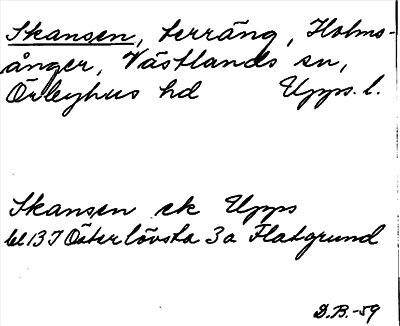 Skansen, terräng, Holms-
ånger, Västlands sn,
Örbyhus hd Upps. l.
Skansen ek Upps
bl 13 I Österlövsta 3a Flatgrund
D.B.-59